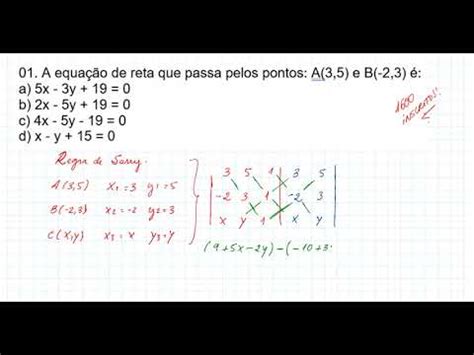 01. A equação de reta que passa pelos pontos: A(3,5) e B(-2,3) é:
a) 5x - 3y + 19 = 0
b) 2x - 5y + 19 = 0
c) 4x - 5y - 19 = 0
d) x - y + 15 = 0
1600 INSCRITOS!
Regra de Sarry.
A(3,5) x₁=3 y₁=5
B(-2,3) x₂=-2 y₂=3
C(x,y) x₃=x y₃=y
3 5 1 3 5
-2 3 1 -2 3
x y 1 x y
(9+5x-2y)-(-10+3